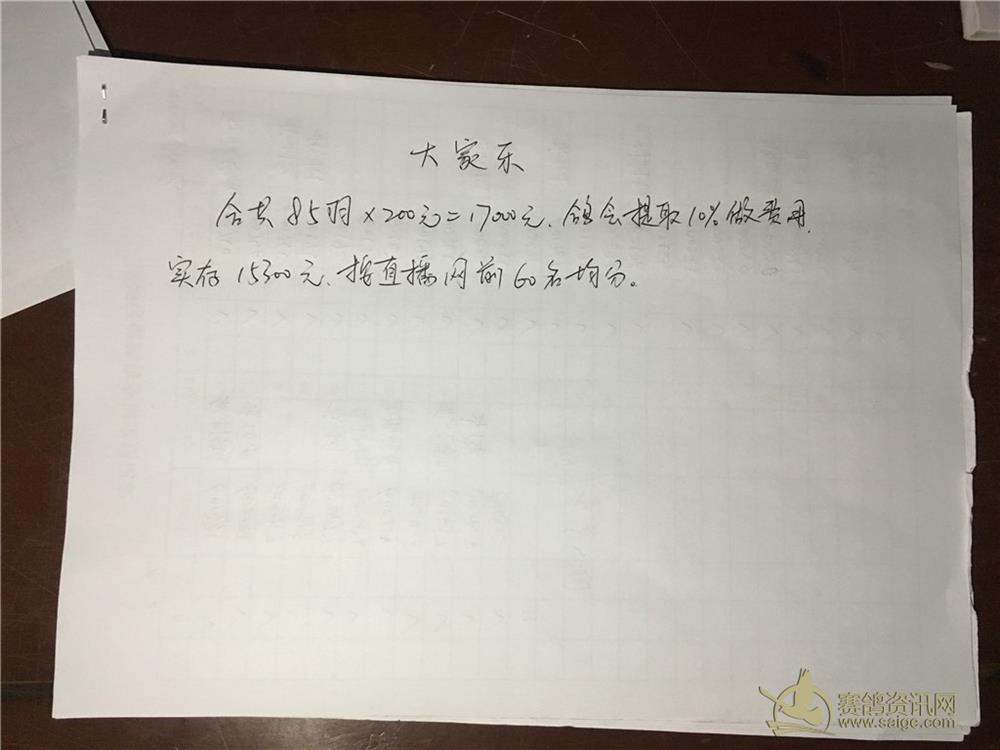 大家乐
合共85羽×200元=17000元、鸽会提取10%做费用.
实存15300元、按直播网前60名均分。
赛鸽资讯网
www.saige.com